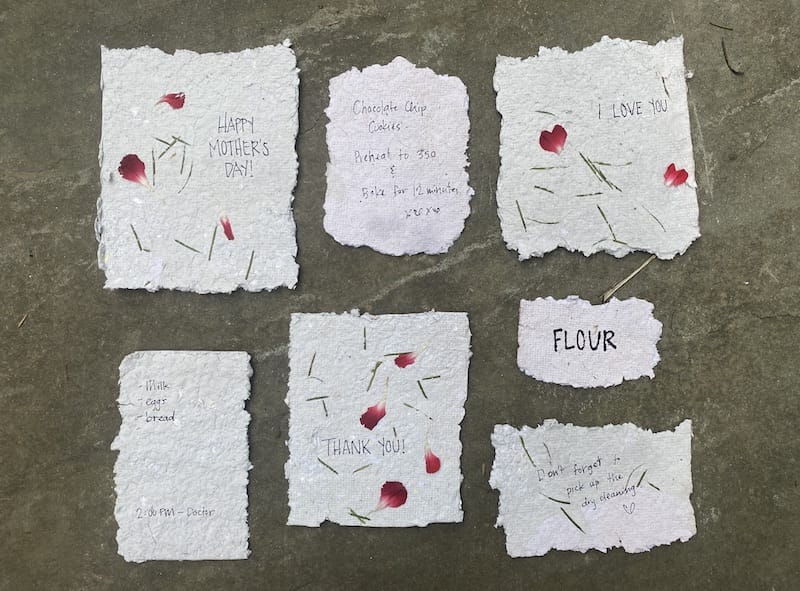 HAPPY
MOTHER'S
DAY!
Chocolate Chip
Cookies
Preheat to 350
&
Bake for 12 minutes
I LOVE YOU
- Milk
- eggs
- bread
2:00 PM - Doctor
THANK YOU!
FLOUR
Don't forget to
pick up the
dry cleaning